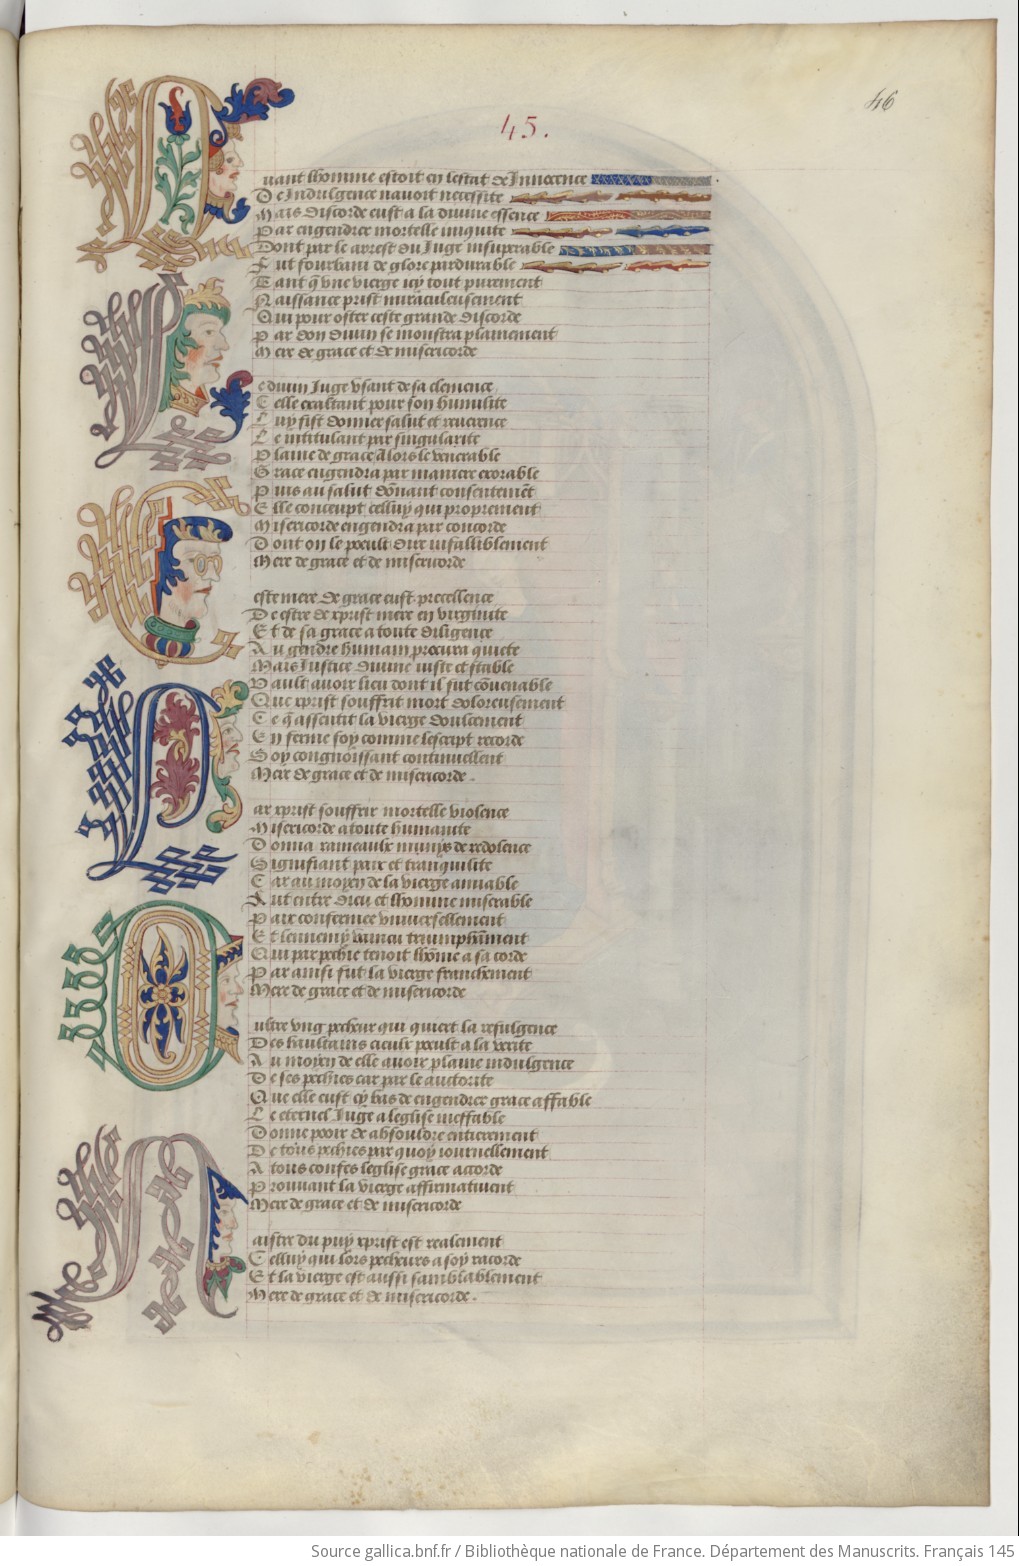 46
45.
Quant lhomme estoit en lestat de Innocence
De Indulgence nauoit necessite
Mais discorde eust a la diuine essence
Par engendrer mortelle iniquite
Dont par le arrest du Iuge insuperable
Fut fourbani de glore pardurable
Tant q̃ vne vierge icy tout purement
Naissance prist miraculeusement
Qui pour oster ceste grande discorde
Par don diuin se monstra plainement
Mere de grace et de misericorde
Le diuin Iuge vsant de sa clemence
Celle exaltant pour son humilite
Luy fist donner salut et reuerence
Le intitulant par singularite
Plaine de grace A lors le venerable
Grace engendra par maniere exorable
Puis au salut dõnant consentemẽt
Elle conceupt celluy qui proprement
Misericorde engendra par concorde
Dont on le poeult dire infalliblement
Mere de grace et de misericorde
Ceste mere de grace eust precellence
De estre de xprist mere en virginite
Et de sa grace a toute diligence
Au gendre humain procura quiete
Mais Iustice diuine iuste et stable
Vault auoir lieu dont il fut cõuenable
Que xprist souffrit mort doloreusement
Ce q̃ assentit la vierge doulcement
En ferme foy comme lescript recorde
Soy congnoissant continuellent
Mere de grace et de misericorde .
Par xprist souffrir mortelle violence
Misericorde a toute humanite
Donna rameaulx munys de redolence
Signifiant paix et tranquilite
Car au moyen de la vierge amiable
Fut entre dieu et lhomme miserable
Paix confermee vniuersellement
Et lennemy vaincu triumphãment
Qui par pechie tenoit lhõme a sa corde
Par ainsi fut la vierge franchement
Mere de grace et de misericorde
Oultre vng pecheur qui quiert la refulgence
Des haultains cieulx poeult a la verite
Au moyen de elle auoir plaine indulgence
De ses pechies car par le auctorite
Que elle eust cy bas de engendrer grace affable
Le eternel Iuge a leglise ineffable
Donne pooir de absouldre entierement
De tous pechies par quoy iournellement
A tous confes leglise grace accorde
Prouuant la vierge affirmatiuent
Mere de grace et de misericorde
Maistre du puy xprist est realement
Celluy qui lors pecheurs a soy racorde
Et la vierge est aussi samblablement
Mere de grace et de misericorde .
Source gallica.bnf.fr / Bibliothèque nationale de France. Département des Manuscrits. Français 145